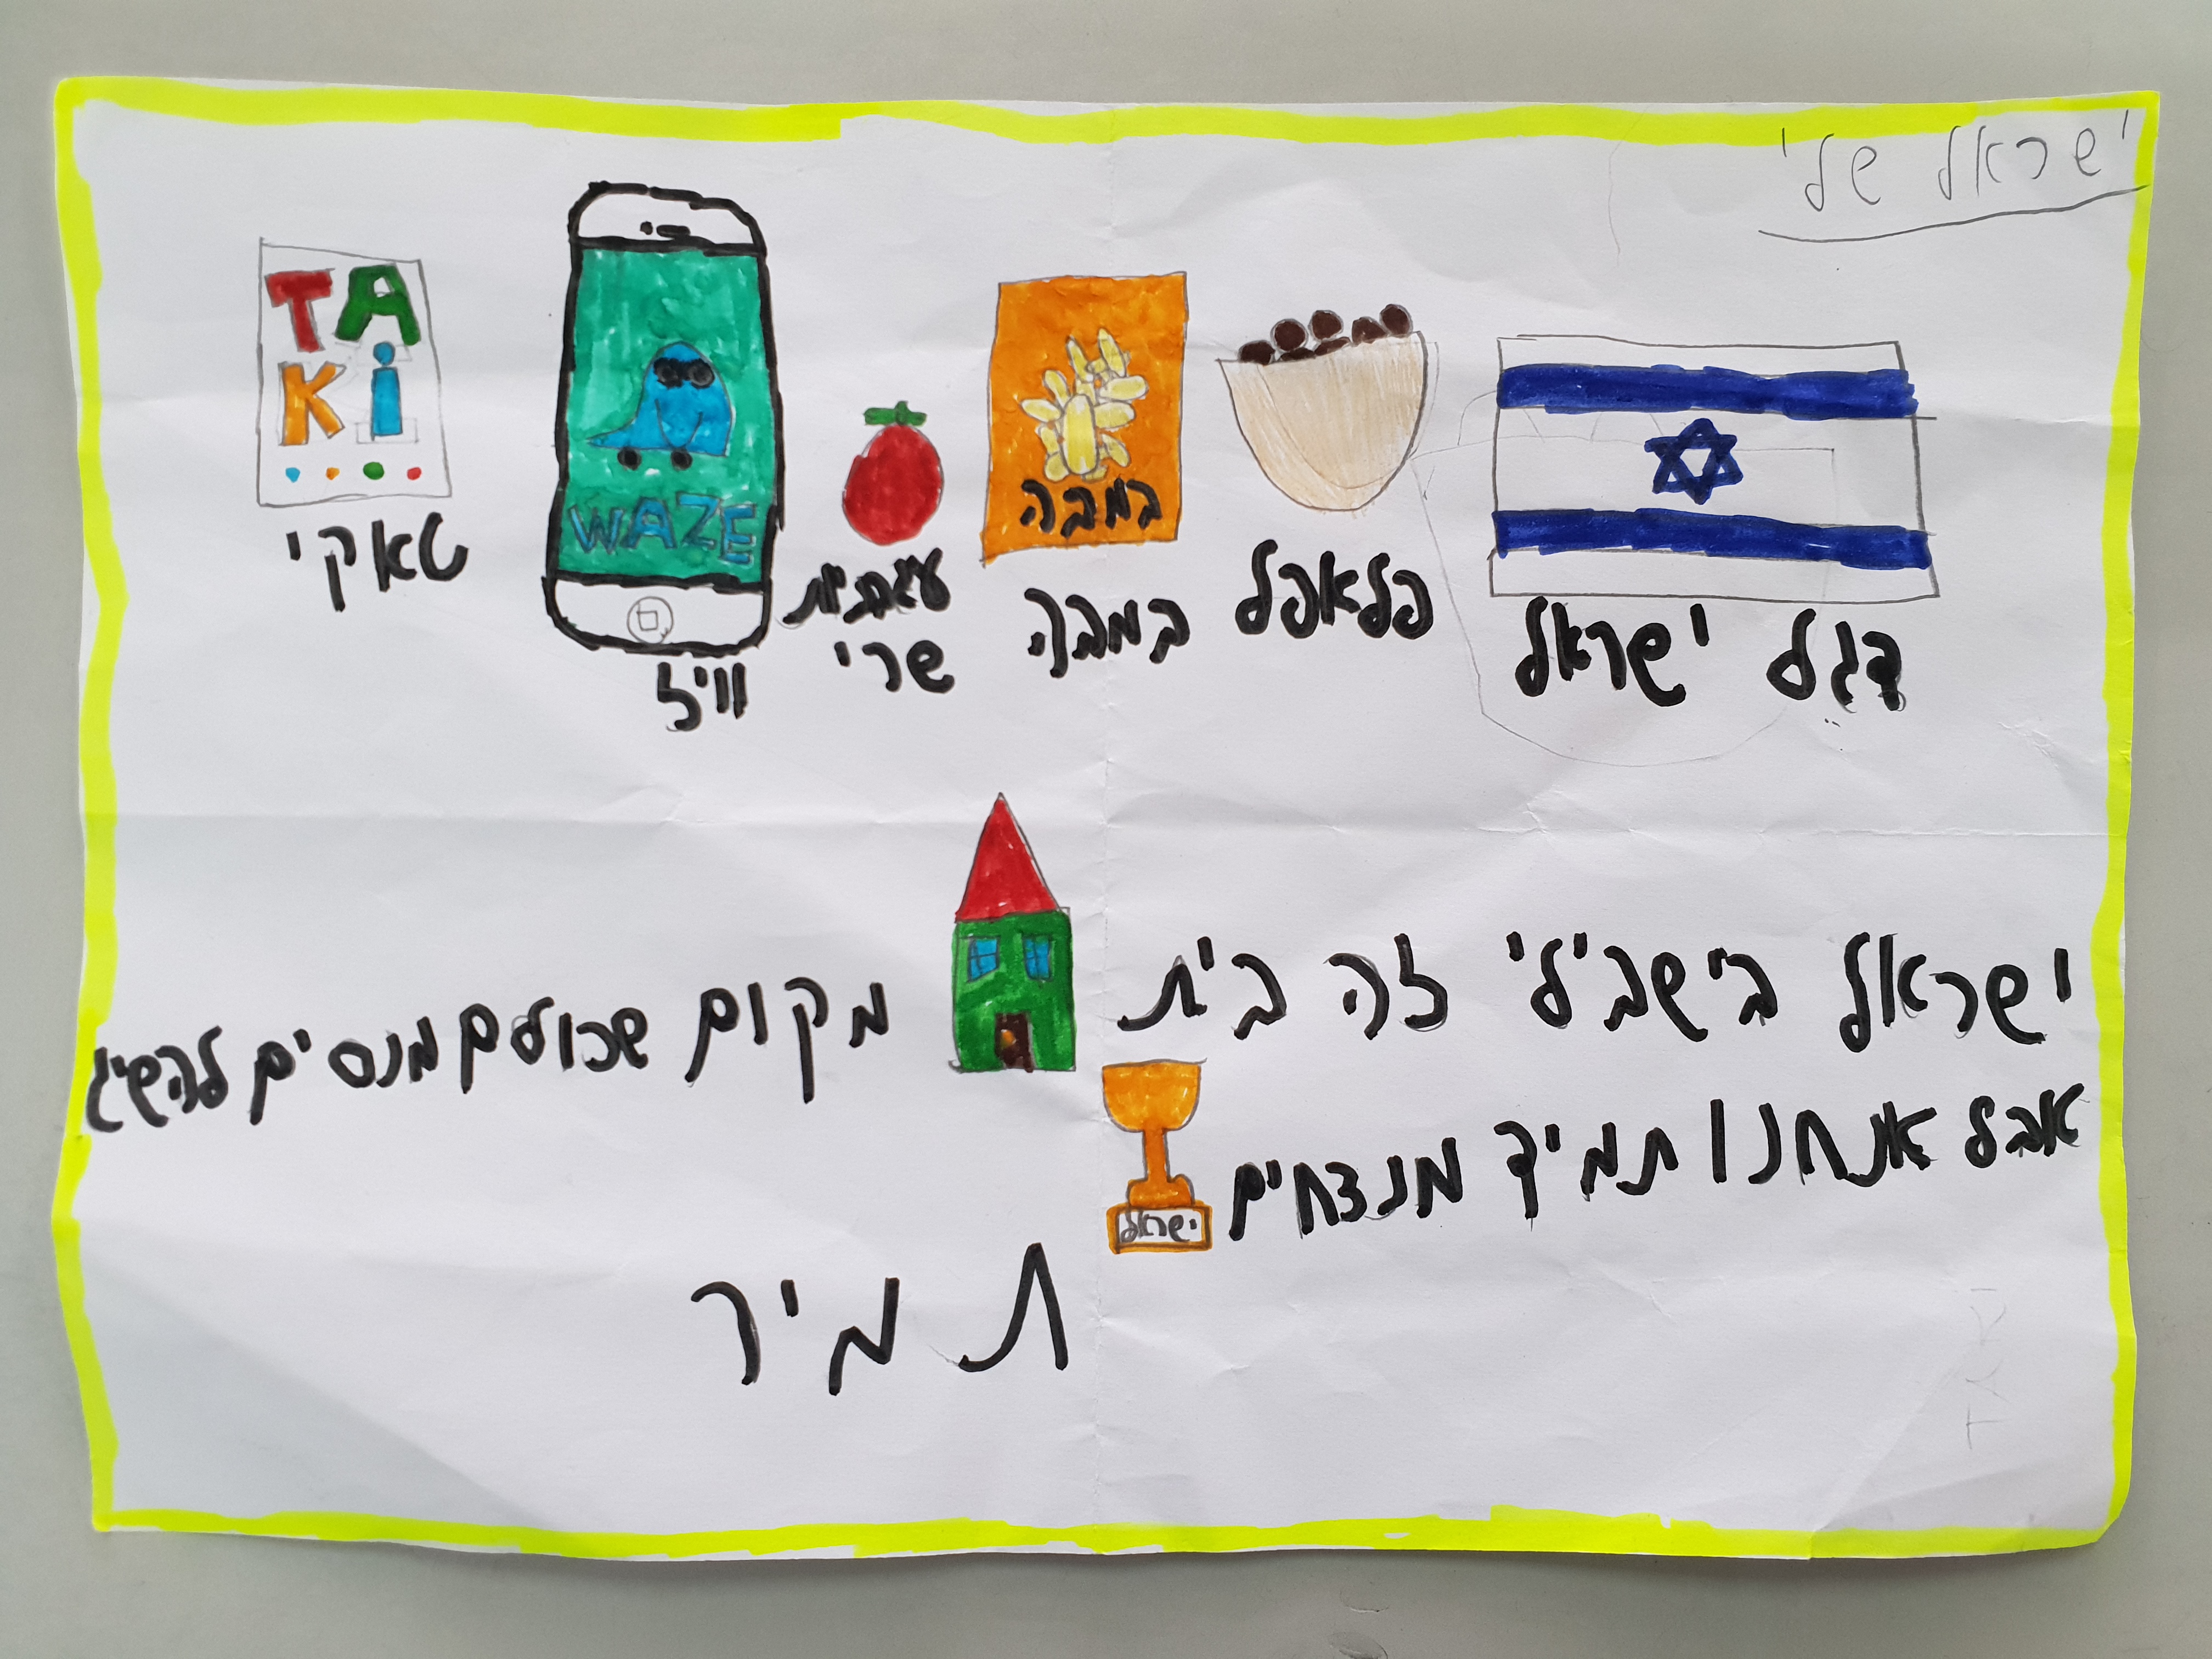 ישראל שלי
דגל ישראל
פלאפל
במבה
במבה
עגבניות
שרי
WAZE
ווייז
TA
Ki
טאקי
ישראל בישבילי זה בית מקום שכולם מנסים להשיג
אבל אנחנו תמיד מנצחים
ישראל
תמיר